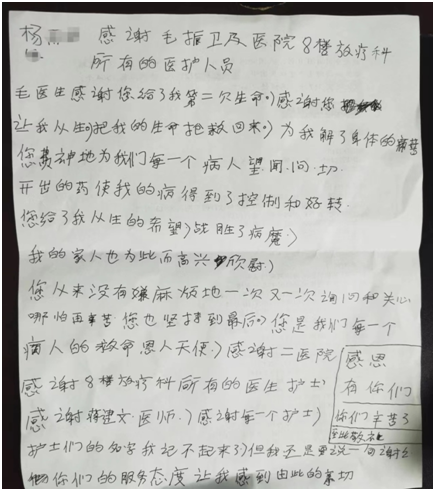 杨
感谢毛振卫及医院8楼放疗科
所有的医护人员
毛医生感谢您给了我第二次生命。感谢您
让我从生把我的生命拯救回来。为我解了身体的病苦
您费神地为我们每一个病人望.闻.问.切.
开出的药使我的病得到了控制和好转.
您给了我从生的希望,战胜了病魔.
我的家人也为此而高兴欣慰.
您从来没有嫌麻烦地一次又一次询问和关心
哪怕再辛苦您也坚持到最后。您是我们每一个
病人的救命恩人天使.感谢二医院
感谢8楼放疗科所有的医生护士
感谢 建文.医师.感谢每一个护士
护士们的名字我记不起来了但我还是要说一句谢谢
你们的服务态度让我感到由此的亲切
感恩
有你们
你们辛苦了
至此敬礼